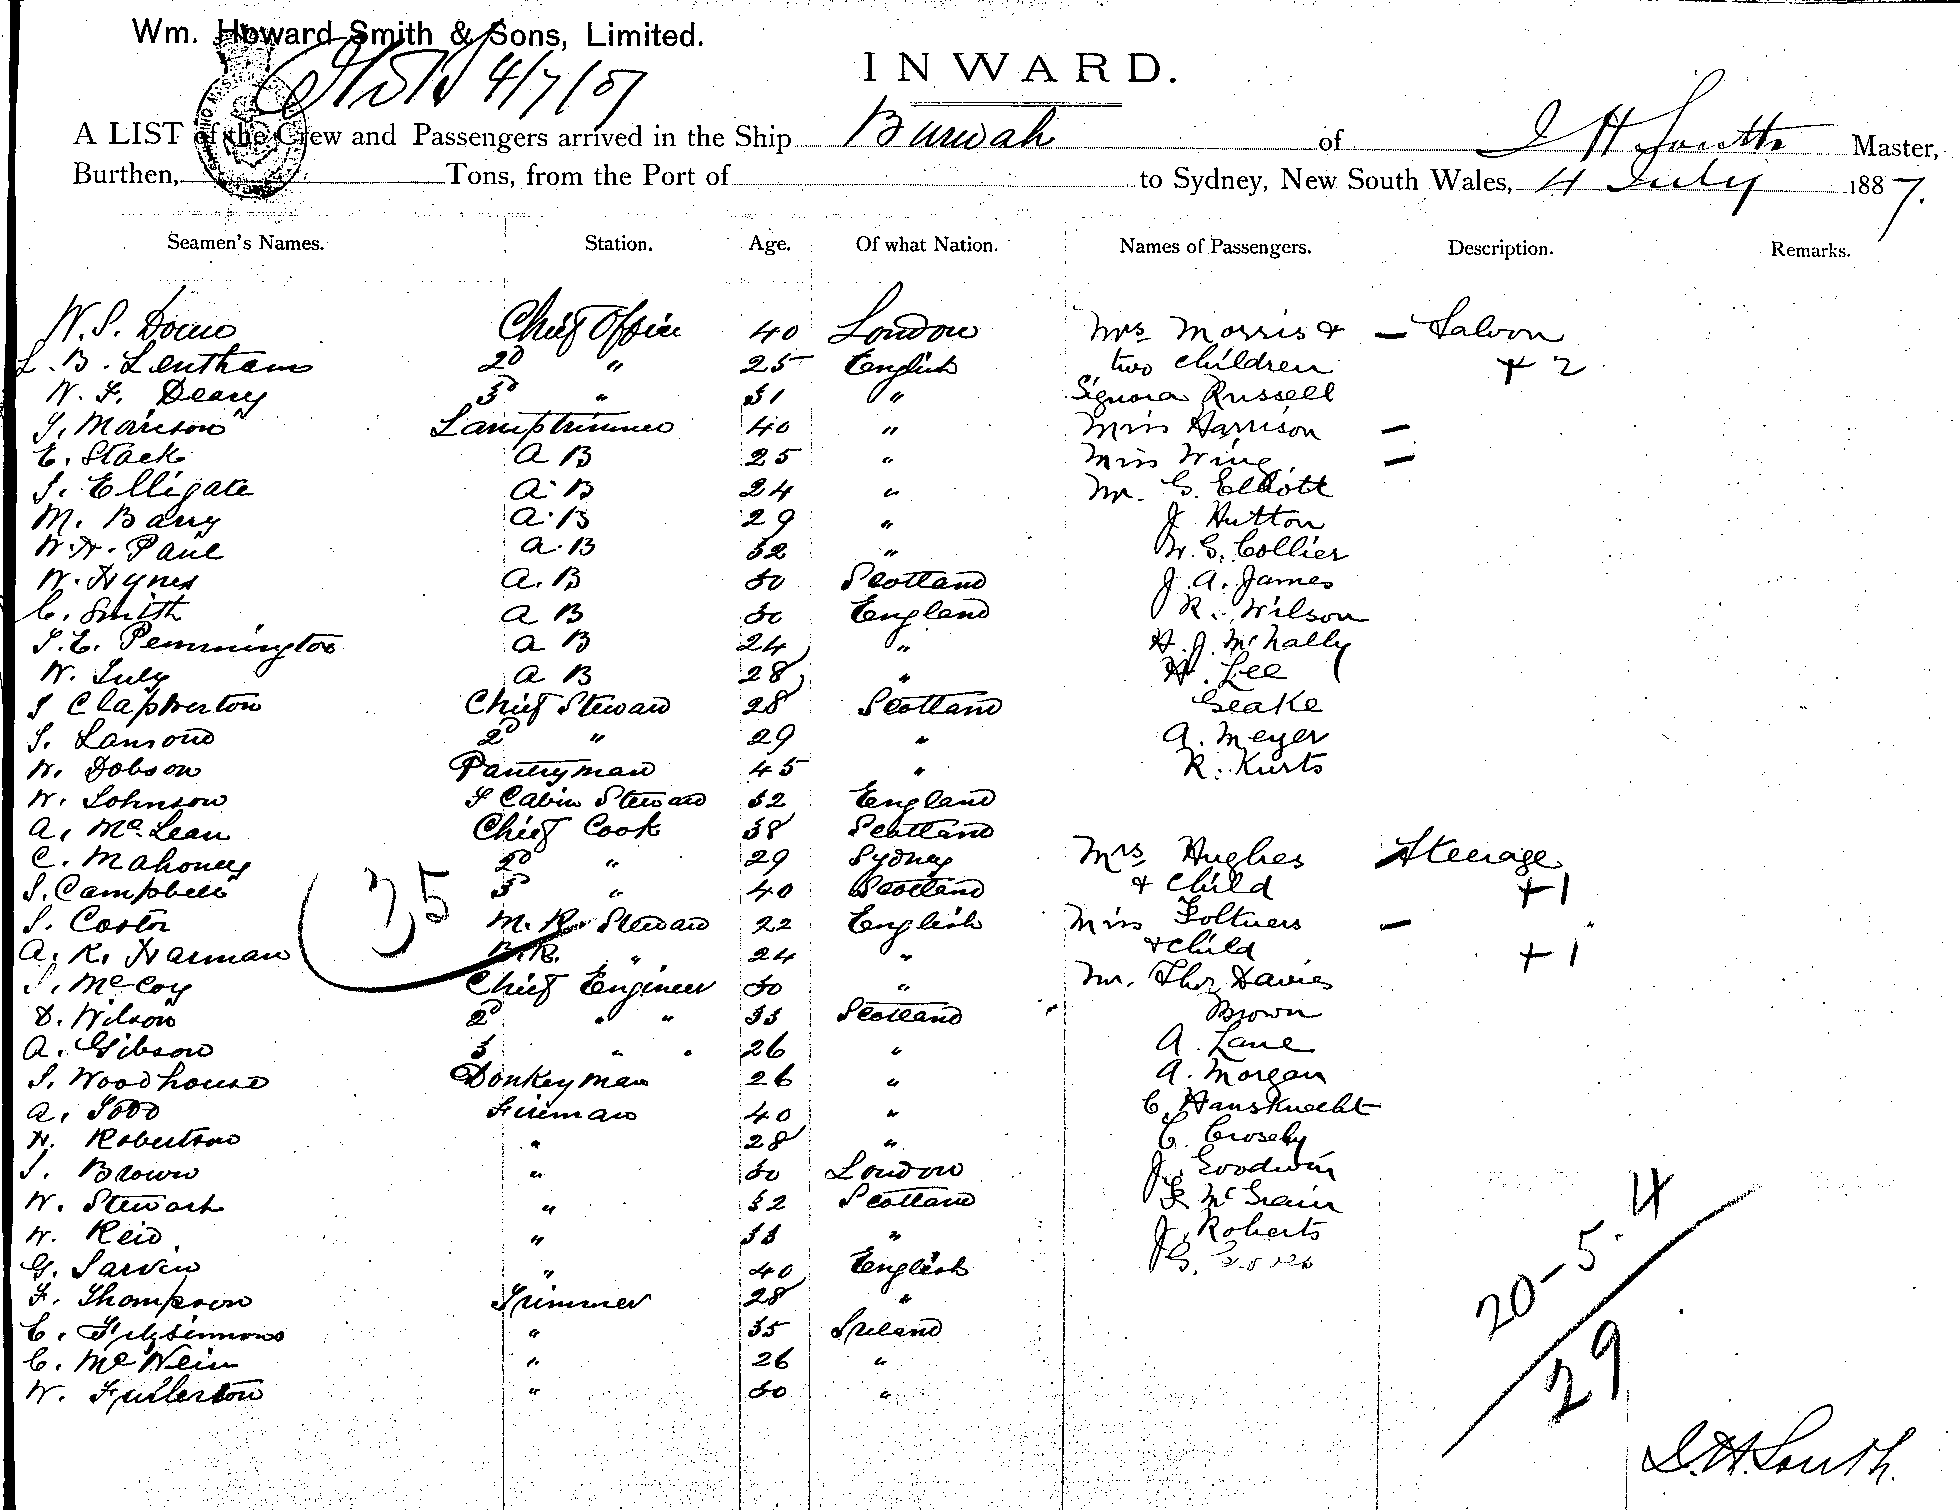 Wm. Howard Smith & Sons, Limited.
4/7/87
INWARD.
A LIST of the Crew and Passengers arrived in the Ship Burwah of J H South Master,
Burthen, Tons, from the Port of to Sydney, New South Wales, 4 July 1887.
Seamen's Names. Station. Age. Of what Nation. Names of Passengers. Description. Remarks.
Chief Officer 40 London Mrs Morris & — Saloon
L. B. Lentham 2d " 25 English two children + 2
W. F. Deary 3d " 31 " Signora Russell
J. Morison Lamptrimmer 40 " Miss Harrison —
E. Stack A B 25 " Miss Wing —
J. Elligate A B 24 " Mr. G. Elliott
M. Barry A. B 29 " J Hutton
W. H. Paul A. B 32 " W. G. Collier
W. Hynes A. B 30 Scotland J. A. James
C. Smith A B 30 England R. Wilson
J. E. Pennington A B 24 " H. J. McNally
W. July A B 28 " H. Lee
J Clapperton Chief Steward 28 Scotland Geake
J. Lamond 2d " 29 " A. Meyer
W. Dobson Pantryman 45 " R. Kurts
W. Johnson F Cabin Steward 32 England
A. McLean Chief Cook 38 Scotland
C. Mahoney 2d " 29 Sydney Mrs Hughes Steerage
J. Campbell 3d " 40 Scotland & child + 1
J. Costor M. R. Steward 22 English Miss —
A. R. Harman " 24 " & child + 1
J. McCoy Chief Engineer 30 " Mr. Thos Davies
D. Wilson 2d " " 33 Scotland Brown
A. Gibson 3 " " 26 " A. Lane
J. Woodhouse Donkeyman 26 " A. Morgan
A. Todd Fireman 40 " C. Hansknecht
H. Robertson " 28 " C. Crosby
J. Brown " 30 London J. Goodwin
W. Stewart " 32 Scotland
W. Reid " 33 " J. Roberts
G. Jarvin " 40 English G.
F. Thompson Trimmer 28 "
C. Fitzsimmons " 35 Ireland
C. " 26 "
W. Fullerton " 30 "
35
20-5.4
29
J. H. South.